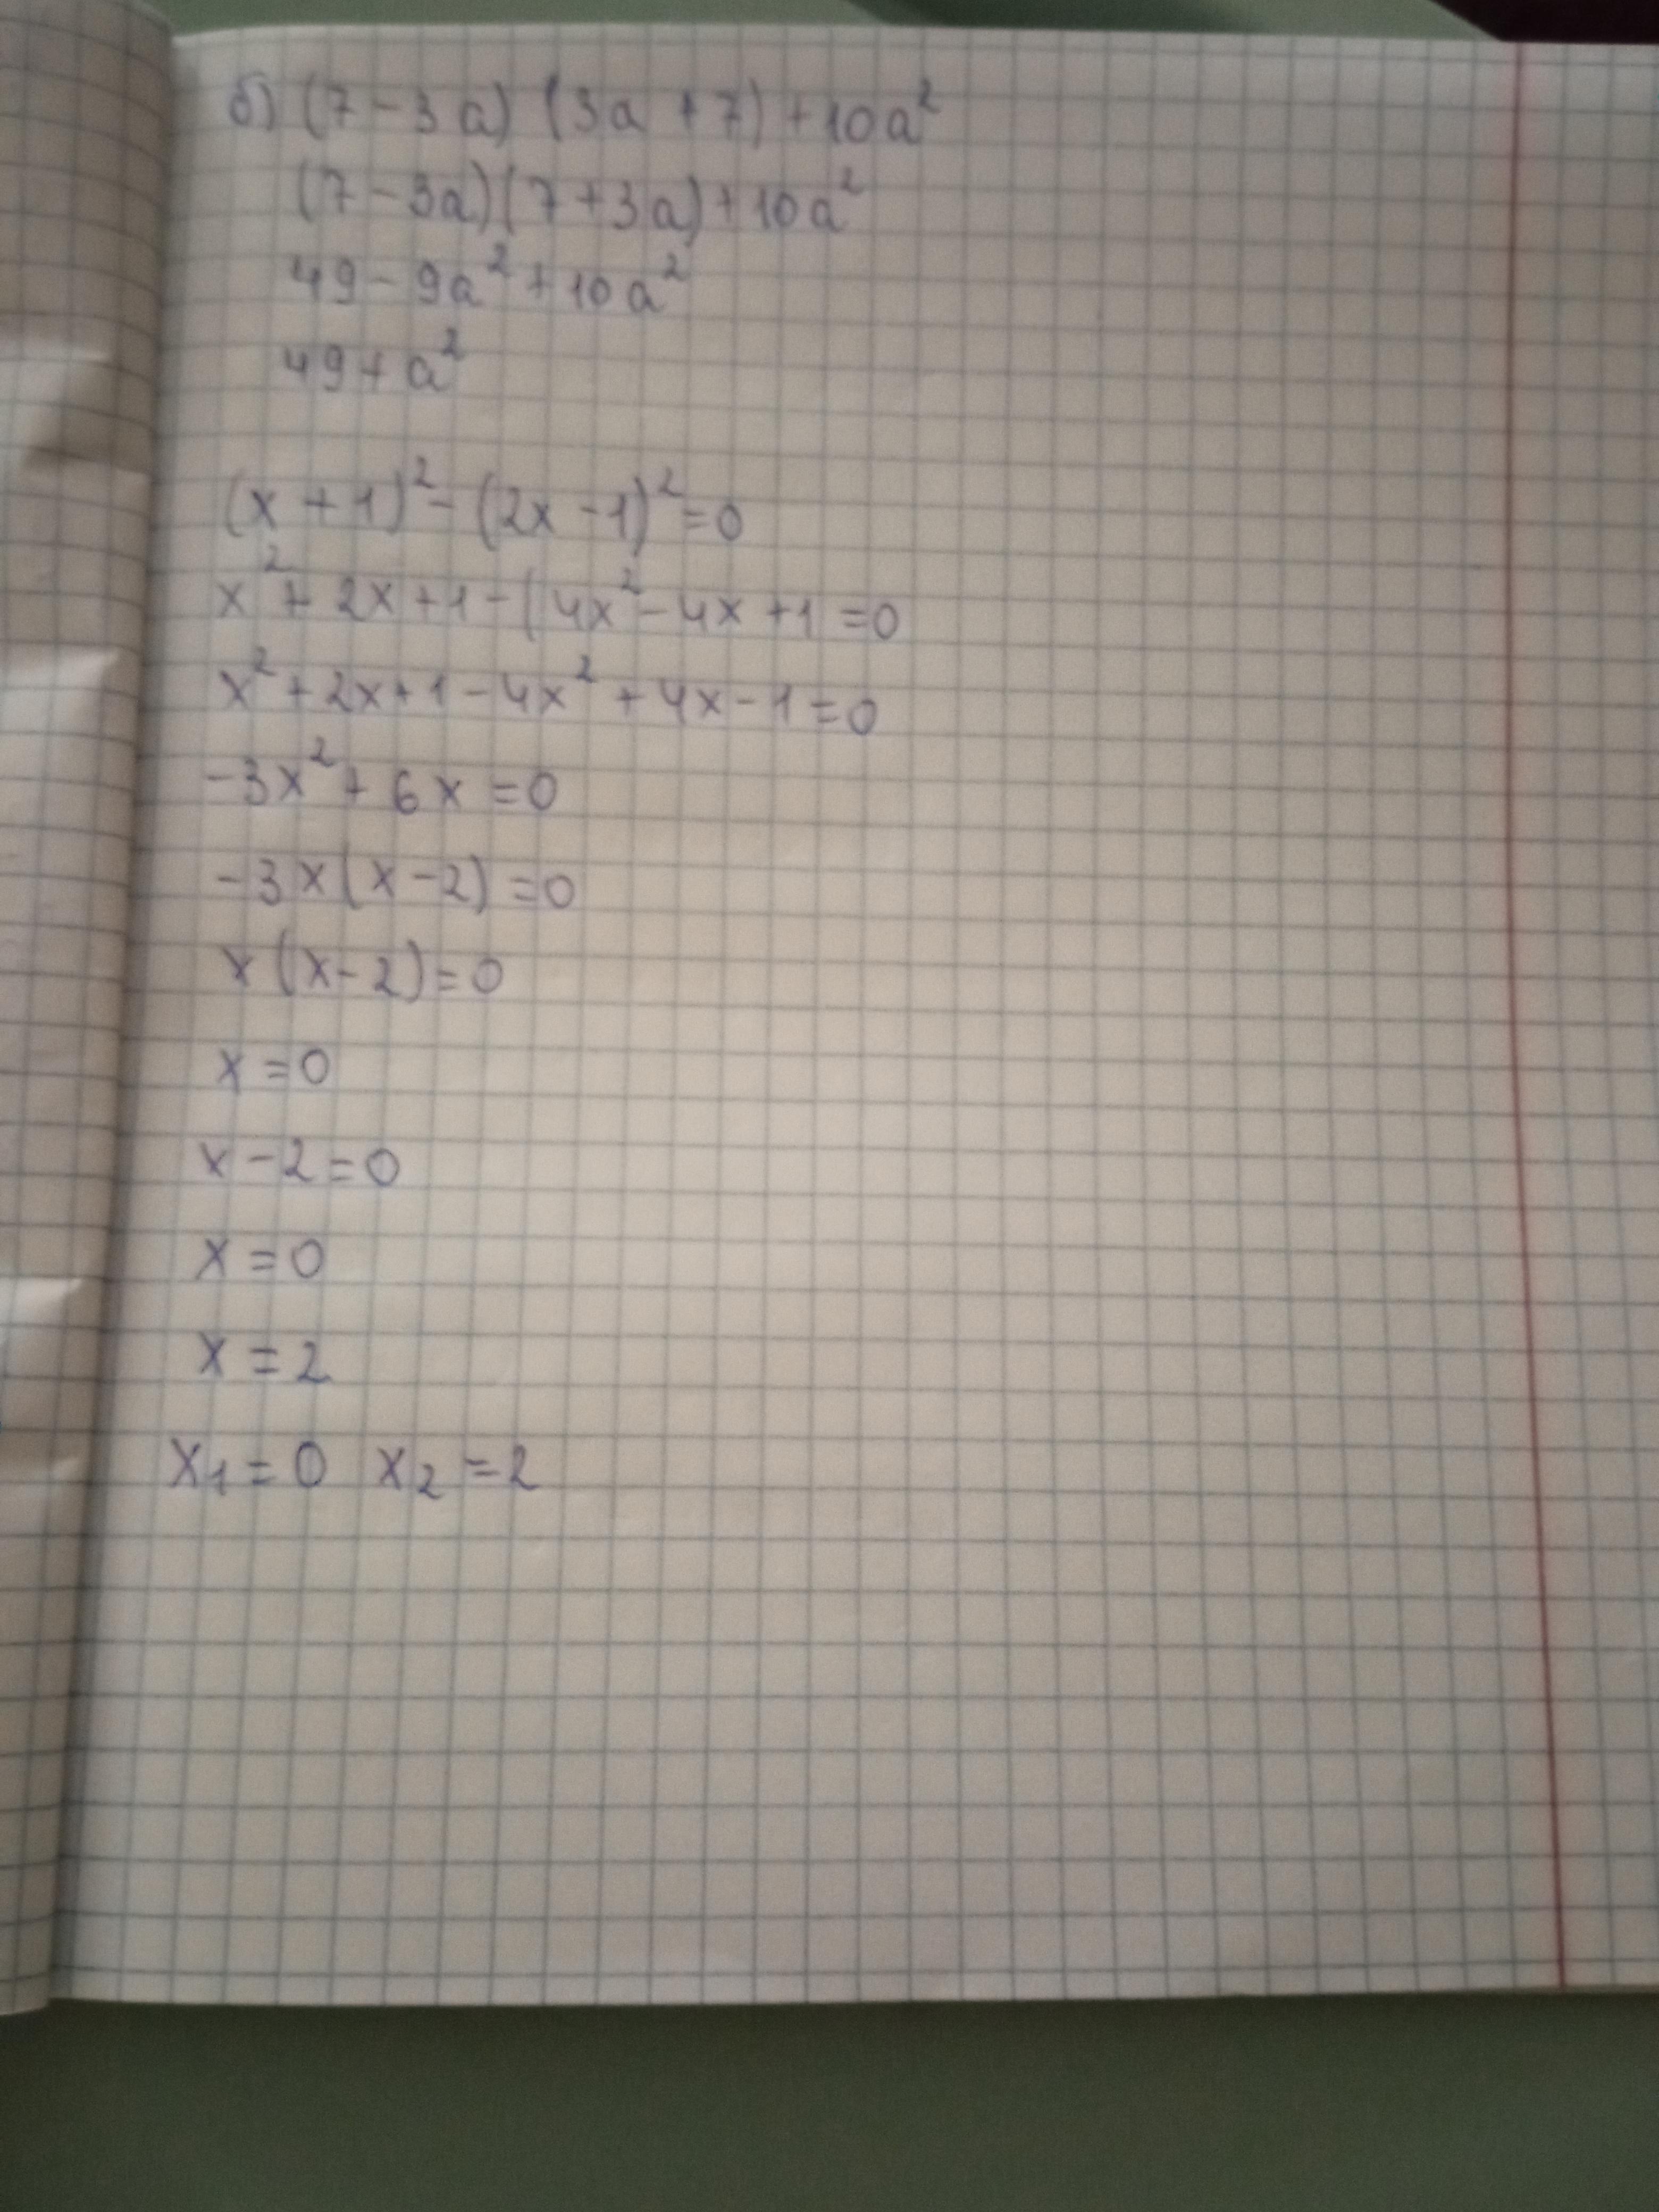 б) (7 - 3a) (3a + 7) + 10a²
(7 - 3a)(7 + 3a) + 10a²
49 - 9a² + 10a²
49 + a²
(x + 1)² - (2x - 1)² = 0
x² + 2x + 1 - (4x² - 4x + 1 = 0
x² + 2x + 1 - 4x² + 4x - 1 = 0
-3x² + 6x = 0
-3x(x - 2) = 0
x(x - 2) = 0
x = 0
x - 2 = 0
x = 0
x = 2
x₁ = 0 x₂ = 2